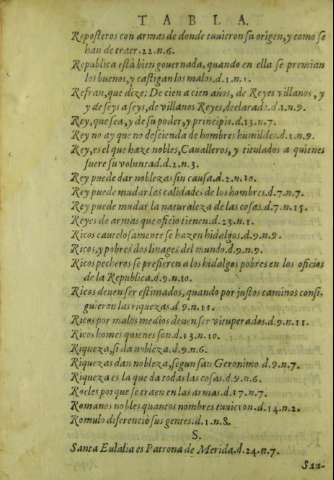 TABLA.
Reposteros con armas de donde tuuieron su origen, y como se
han de traer. 22. n. 6.
Republica està bien gouernada, quando en ella se premian
los buenos, y castigan los malos. d. 1. n. 1.
Refran, que dize: De cien a cien años, de Reyes villanos, y
y de seys a seys, de villanos Reyes, declarado. d. 1. n. 9.
Rey, que sea, y de su poder, y principio. d. 13. n. 7.
Rey no ay que no descienda de hombres humildes. d. 1. n. 9.
Rey, es el que haze nobles, Caualleros, y titulados a quienes
fuere su voluntad. d. 2. n. 3.
Rey puede dar nobleza sin causa. d. 2. n. 10.
Rey puede mudar las calidades de los hombres. d. 7. n. 7.
Rey puede mudar la naturaleza de las cosas. d. 7. n. 13.
Reyes de armas que oficio tienen. d. 23. n. 1.
Ricos cautelosamente se hazen hidalgos. d. 9. n. 9.
Ricos, y pobres dos linages del mundo. d. 9. n. 9.
Ricos pecheros se prefieren a los hidalgos pobres en los oficios
de la Republica. d. 9. n. 10.
Ricos deuen ser estimados, quando por justos caminos consi-
guieron las riquezas. d. 9. n. 11.
Ricos por malos medios deuen ser vituperados. d. 9. n. 11.
Ricos homes quienes son. d. 13. n. 10.
Riqueza, si da nobleza. d. 9. n. 6.
Riquezas dan nobleza, segun san Geronimo. d. 9. n. 7.
Riqueza es la que da todas las cosas. d. 9. n. 6.
Roeles por que se traen en las armas. d. 17. n. 7.
Romanos nobles quantos nombres tuuieron. d. 14. n. 2.
Romulo diferenciò sus gentes. d. 1. n. 8.
S.
Santa Eulalia es Patrona de Merida. d. 24. n. 7.